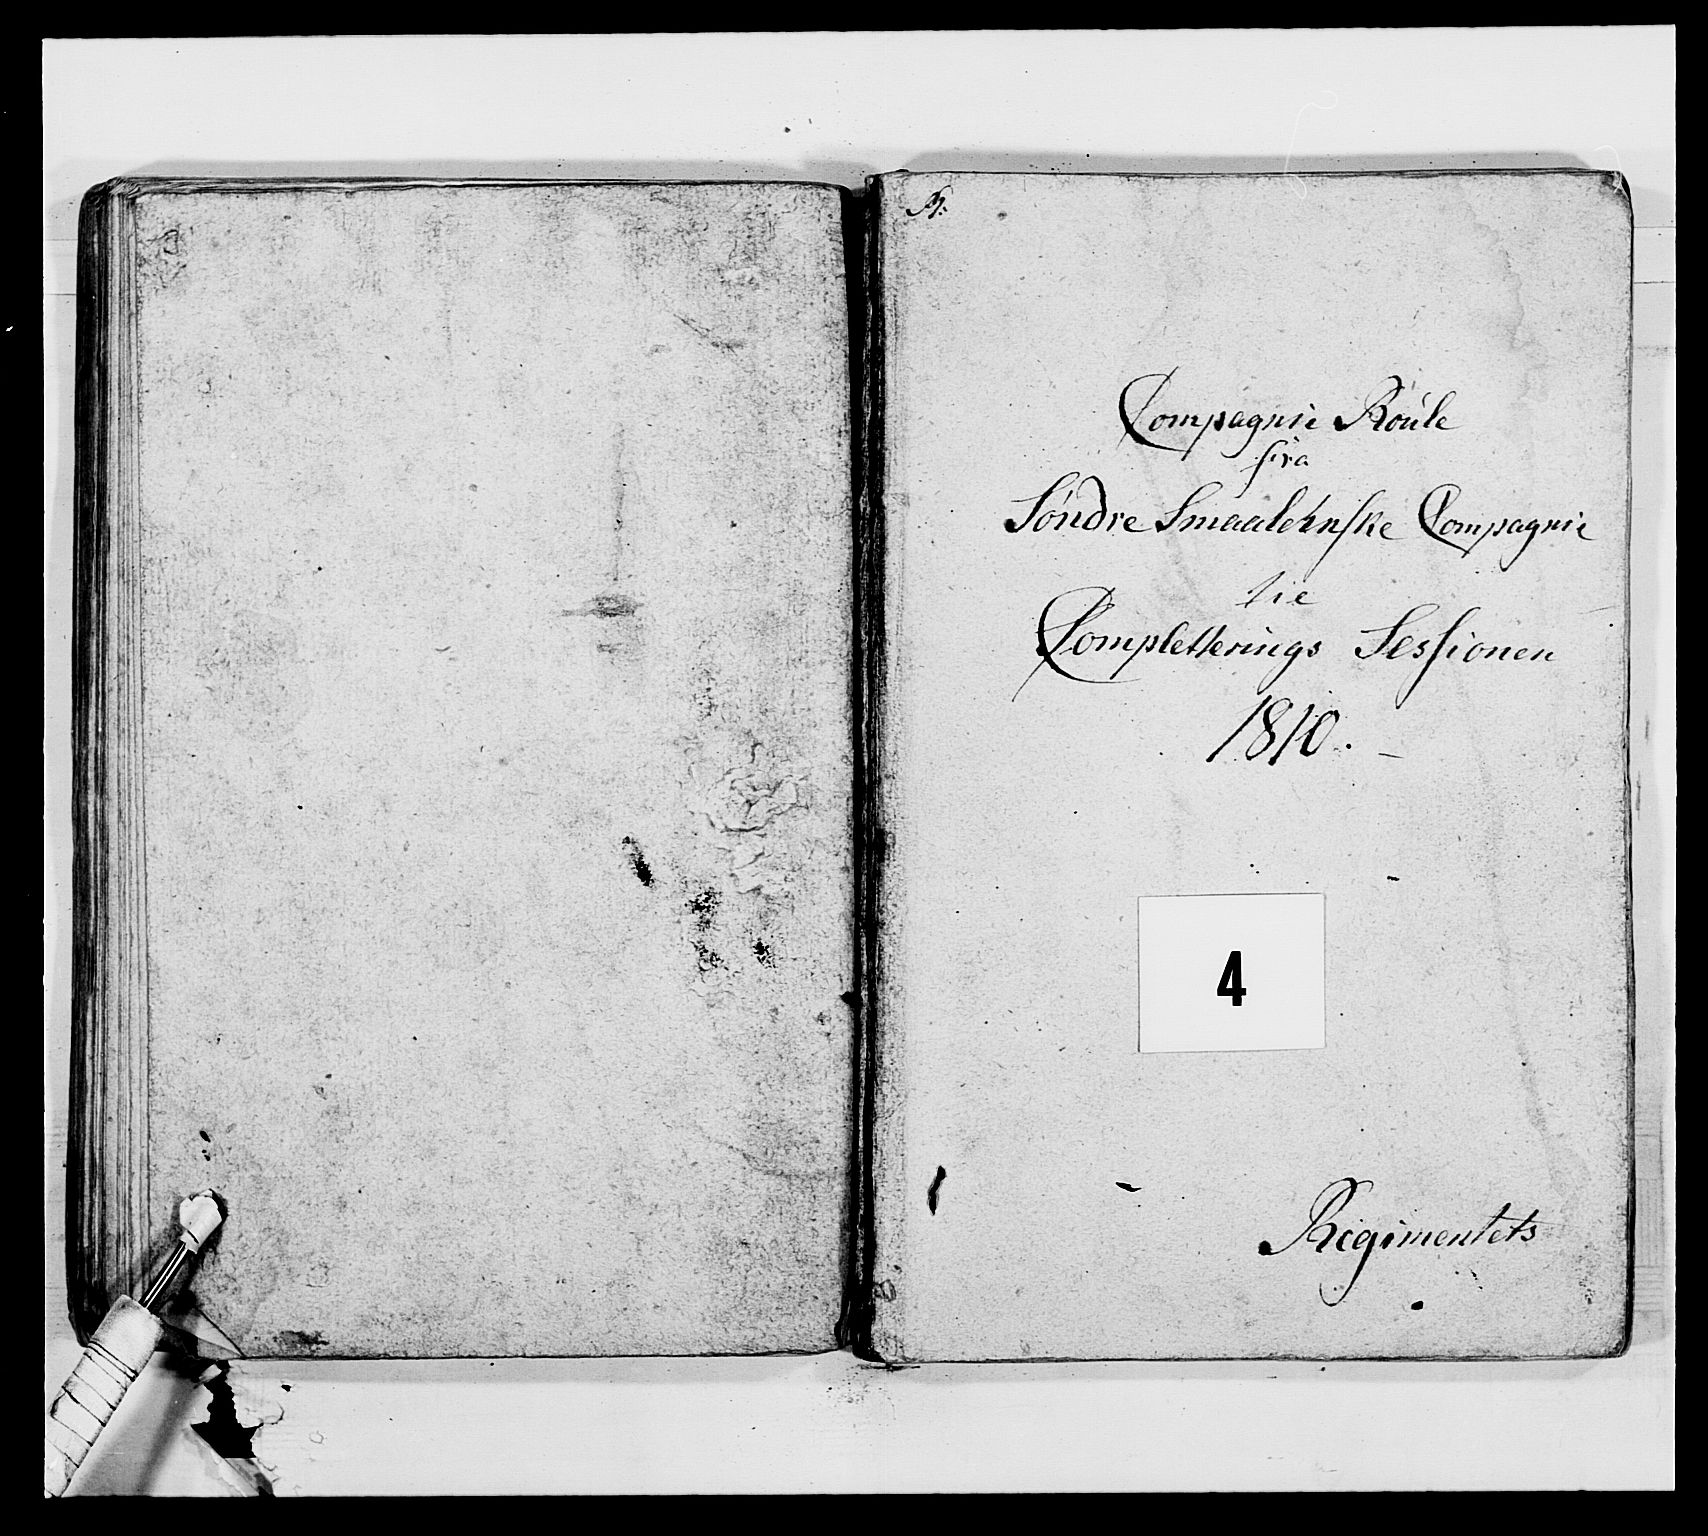 Compagnie Roúle
fra
Søndre Smaalehnske Compagnie
til
Completterings Sessionen
1810.
4
Regimentets